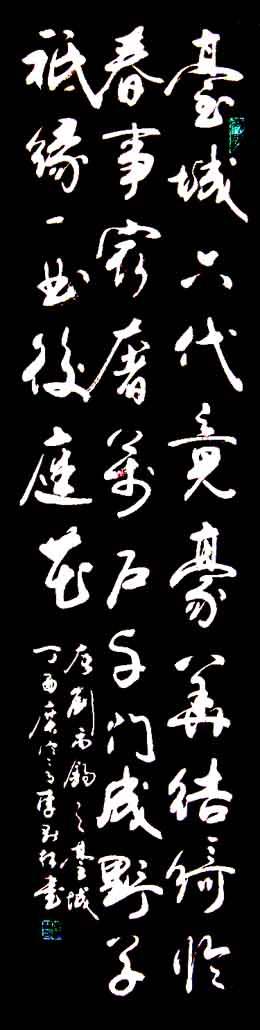 臺城六代竟豪華結綺臨
春事最奢萬户千門成野草
祇緣一曲後庭花
唐劉禹錫之臺城
丁酉書